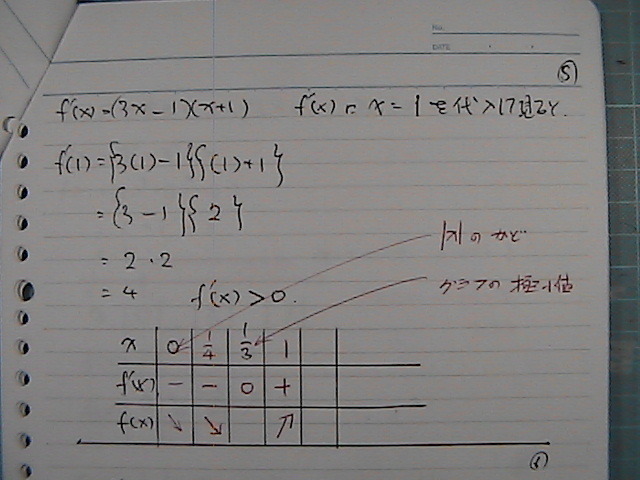 No.
DATE
⑤
f'(x)=(3x-1)(x+1) f'(x)に x=1を代入して見ると.
f'(1)={3(1)-1}{(1)+1}
={3-1}{2}
=2・2
=4 f'(x)>0.
|x|のかど
グラフの極小値
x 0 1/4 1/3 1
f'(x) - - 0 +
f(x) ↘ ↘ ↗